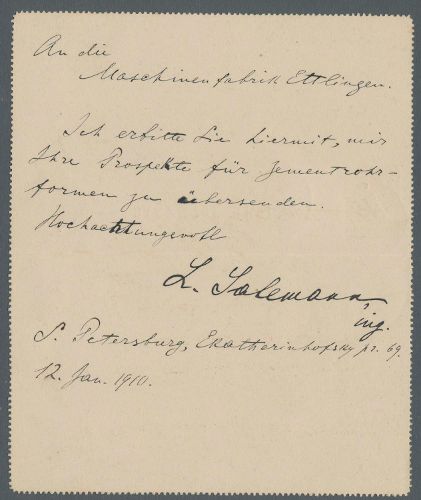 An die
Maschinenfabrik Ettlingen.
Ich erbitte Sie hiermit, mir
Ihre Prospekte für Zementrohr-
formen zu übersenden.
Hochachtungsvoll
L. Salemann,
ing.
S. Petersburg, Ekatherinhofsky pr. 69.
12. Jan. 1910.